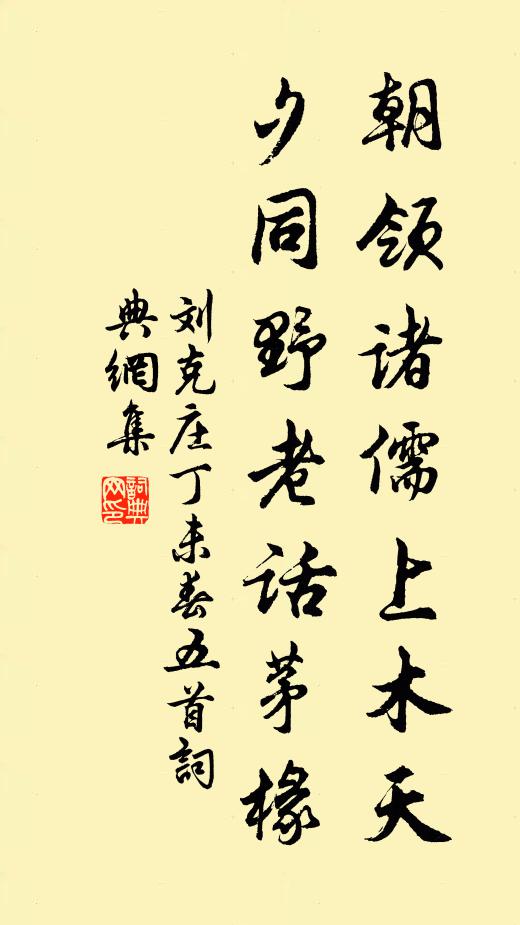 朝领诸儒上木天
夕同野老话茅椽
刘克庄丁未春五首詞
典網集
詞典网印